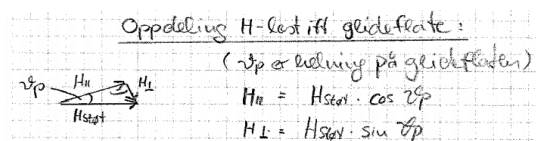 Oppdeling H-last ift glideflate:
(ϑp er helning på glideflaten)
ϑp H॥ H⊥
Hstøt
H॥ = Hstøt · cos ϑp
H⊥ = Hstøt · sin ϑp